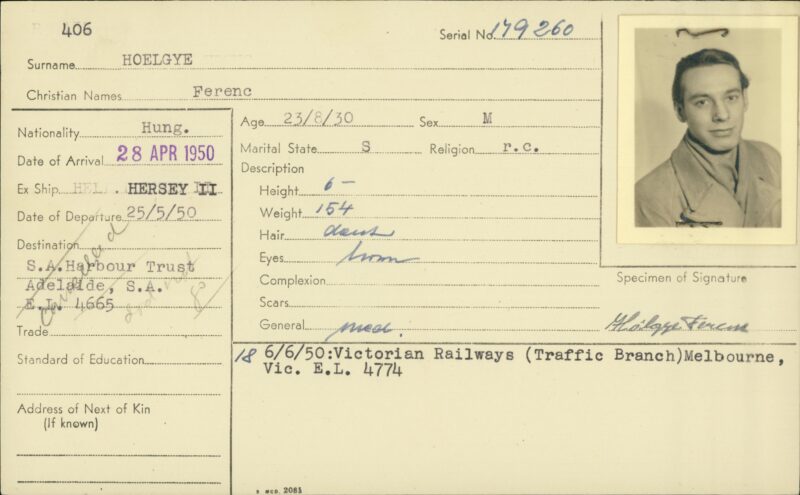 406
Serial No. 179260
Surname HOELGYE
Christian Names Ferenc
Nationality Hung.
Date of Arrival 28 APR 1950
Ex Ship HERSEY II
Date of Departure 25/5/50
Destination
S.A. Harbour Trust
Adelaide, S.A.
E.L. 4665
cancelled
Trade
Standard of Education
Address of Next of Kin
(If known)
Age 23/8/30 Sex M
Marital State S Religion r.c.
Description
Height 6 –
Weight 154
Hair dark
Eyes brown
Complexion
Scars
General med.
Specimen of Signature
Hölgye Ferenc
18 6/6/50:Victorian Railways (Traffic Branch)Melbourne,
Vic. E.L. 4774
2085